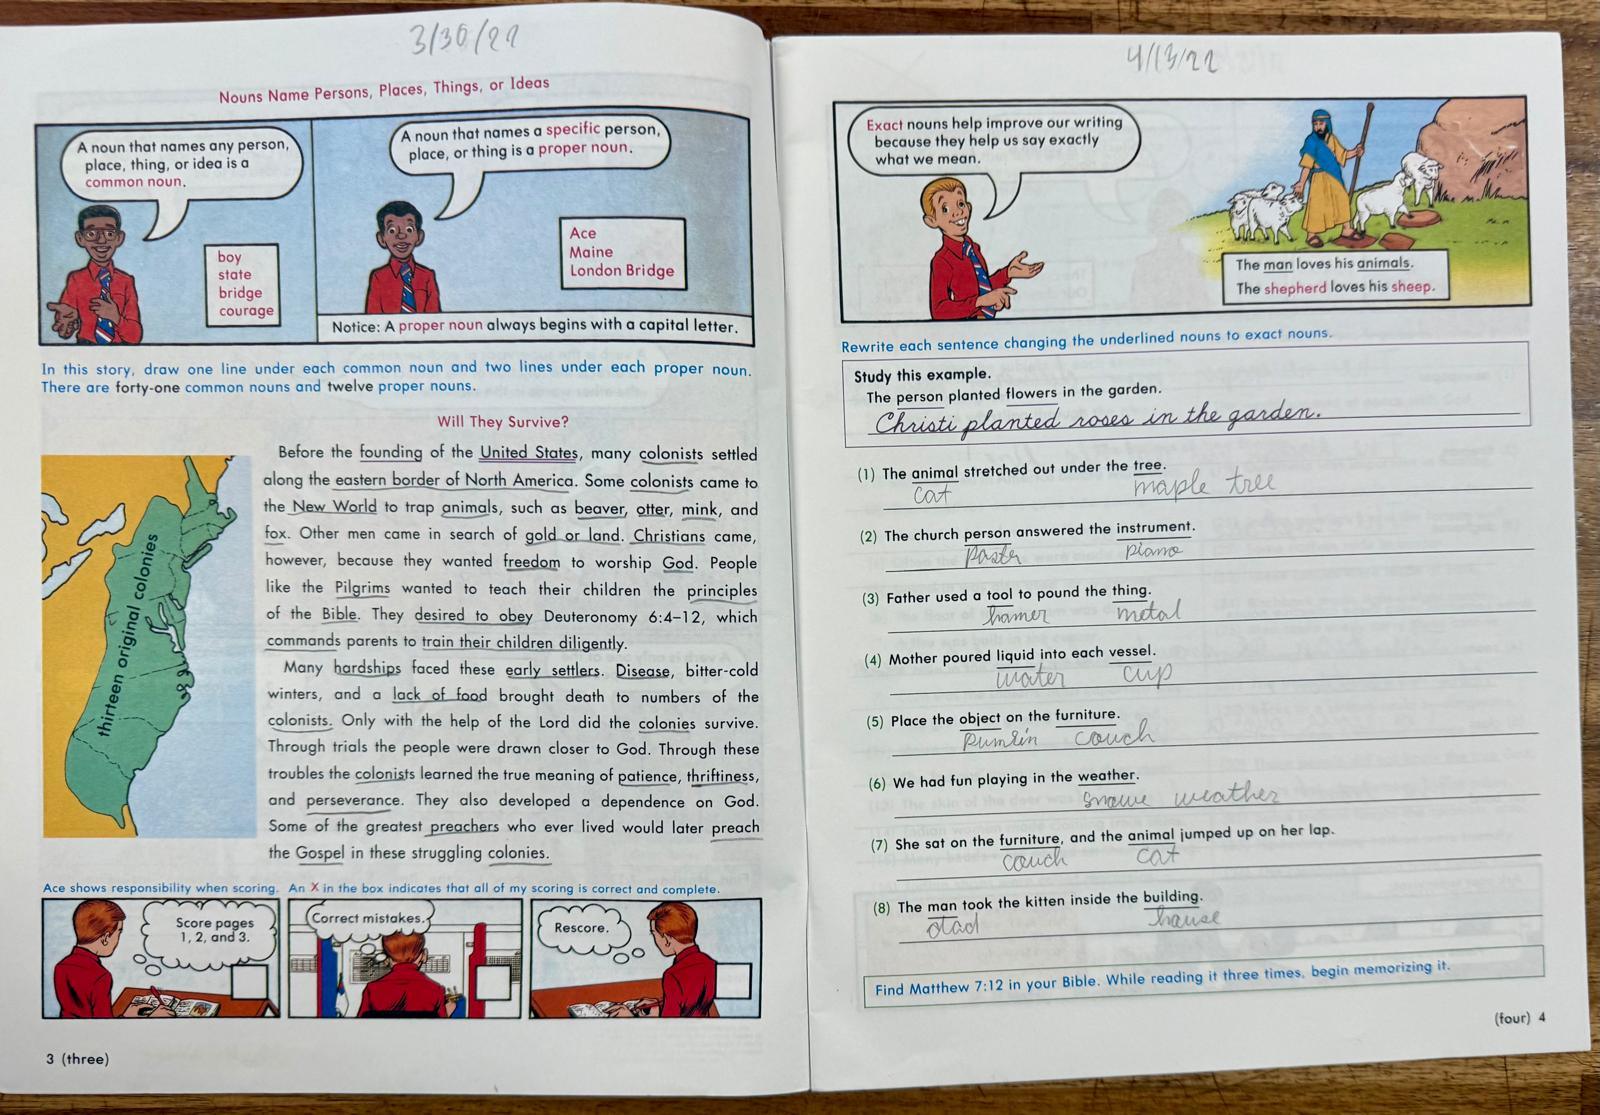 3/30/22
Nouns Name Persons, Places, Things, or Ideas
A noun that names any person,
place, thing, or idea is a
common noun.
boy
state
bridge
courage
A noun that names a specific person,
place, or thing is a proper noun.
Ace
Maine
London Bridge
Notice: A proper noun always begins with a capital letter.
In this story, draw one line under each common noun and two lines under each proper noun.
There are forty-one common nouns and twelve proper nouns.
Will They Survive?
thirteen original colonies
Before the founding of the United States, many colonists settled
along the eastern border of North America. Some colonists came to
the New World to trap animals, such as beaver, otter, mink, and
fox. Other men came in search of gold or land. Christians came,
however, because they wanted freedom to worship God. People
like the Pilgrims wanted to teach their children the principles
of the Bible. They desired to obey Deuteronomy 6:4–12, which
commands parents to train their children diligently.
Many hardships faced these early settlers. Disease, bitter-cold
winters, and a lack of food brought death to numbers of the
colonists. Only with the help of the Lord did the colonies survive.
Through trials the people were drawn closer to God. Through these
troubles the colonists learned the true meaning of patience, thriftiness,
and perseverance. They also developed a dependence on God.
Some of the greatest preachers who ever lived would later preach
the Gospel in these struggling colonies.
Ace shows responsibility when scoring. An X in the box indicates that all of my scoring is correct and complete.
Score pages
1, 2, and 3.
Correct mistakes.
Rescore.
3 (three)
4/13/22
Exact nouns help improve our writing
because they help us say exactly
what we mean.
The man loves his animals.
The shepherd loves his sheep.
Rewrite each sentence changing the underlined nouns to exact nouns.
Study this example.
The person planted flowers in the garden.
Christi planted roses in the garden.
(1) The animal stretched out under the tree.
cat maple tree
(2) The church person answered the instrument.
Paster piano
(3) Father used a tool to pound the thing.
hamer metal
(4) Mother poured liquid into each vessel.
water cup
(5) Place the object on the furniture.
couch
(6) We had fun playing in the weather.
weather
(7) She sat on the furniture, and the animal jumped up on her lap.
couch cat
(8) The man took the kitten inside the building.
house
Find Matthew 7:12 in your Bible. While reading it three times, begin memorizing it.
(four) 4